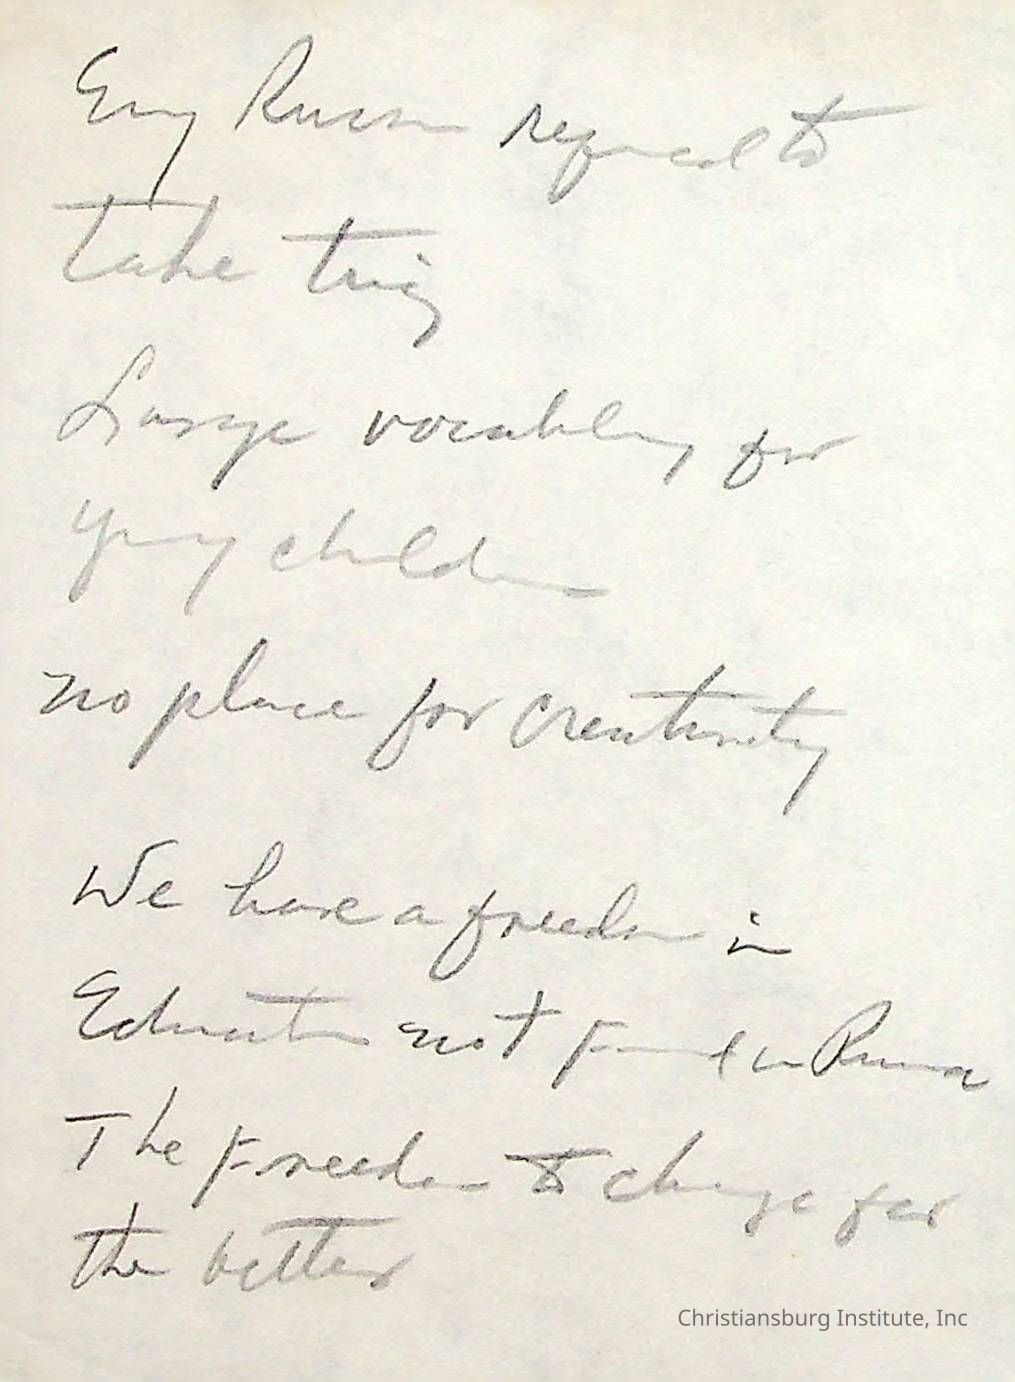 Every Russian required to
take trig
Large vocabulary for
young children
no place for creativity
We have a freedom in
Education not Found in Russia
The Freedom to change for
the better
Christiansburg Institute, Inc